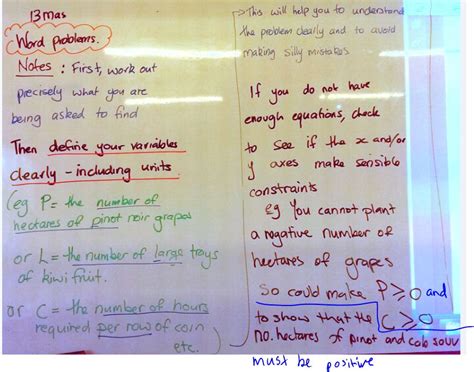 13mas
Word problems.
Notes : First, work out
precisely what you are
being asked to find
Then define your variables
clearly - including units.
(eg P = the number of
hectares of pinot noir grapes
or L = the number of large trays
of kiwi fruit.
or C = the number of hours
required per row of corn
etc.)
This will help you to understand
the problem clearly and to avoid
making silly mistakes.
If you do not have
enough equations, check
to see if the x and/or
y axes make sensible
constraints
Eg You cannot plant
a negative number of
hectares of grapes
So could make P ⩾ 0 and
to show that the C ⩾ 0
no. hectares of pinot and cab sauv
must be positive